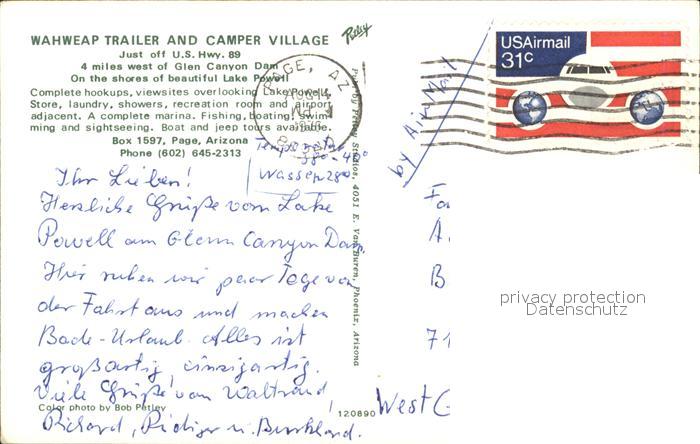 WAHWEAP TRAILER AND CAMPER VILLAGE
Just off U.S. Hwy. 89
4 miles west of Glen Canyon Dam
On the shores of beautiful Lake Powell
Complete hookups, viewsites overlooking Lake Powell.
Store, laundry, showers, recreation room and airport
adjacent. A complete marina. Fishing, boating, swim-
ming and sightseeing. Boat and jeep tours available.
Box 1597, Page, Arizona
Phone (602) 645-2313
Petley
PAGE, AZ
1976
USAirmail
31c
by Air Mail
38°-40°
Wasser 28°
Ihr Lieben!
Herzliche Grüße vom Lake
Powell am Glenn Canyon Dam.
Hier ruhen wir paar Tage von
der Fahrt aus und machen
Bade-Urlaub. Alles ist
großartig, einzigartig.
Viele Grüße von Waltraud,
Richard, Rüdiger u. Burkhard.
Color photo by Bob Petley
120890
Studios, 4051 E. Van Buren, Phoenix, Arizona
A.
B
71
West G
privacy protection
Datenschutz